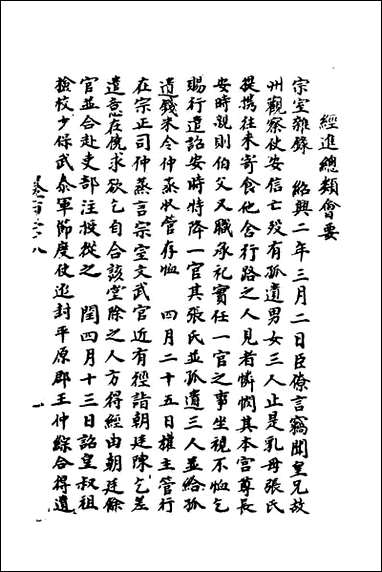 經進總類會要
宗室雜錄 紹興二年三月二日臣僚言竊聞皇兄故
州觀察使安信亡歿有孤遺男女三人止是乳母張氏
提攜往來寄食他舍行路之人見者憐憫其本宮尊長
安時親則伯父又職承祀實任一官之事坐視不恤乞
賜行遣詔安時特降一官其張氏並孤遺三人並給孤
遺錢米令仲湜收管存恤 四月二十五日權主管行
在宗正司仲蒸言宗室文武官近有徑詣朝廷陳乞差
遣意在僥求欲乞自合該堂除之人方得經由朝廷餘
官並合赴吏部注授從之 閏四月十三日詔皇叔祖
檢校少保武泰軍節度使追封平原郡王仲綜合得遺
卷一百六八
一